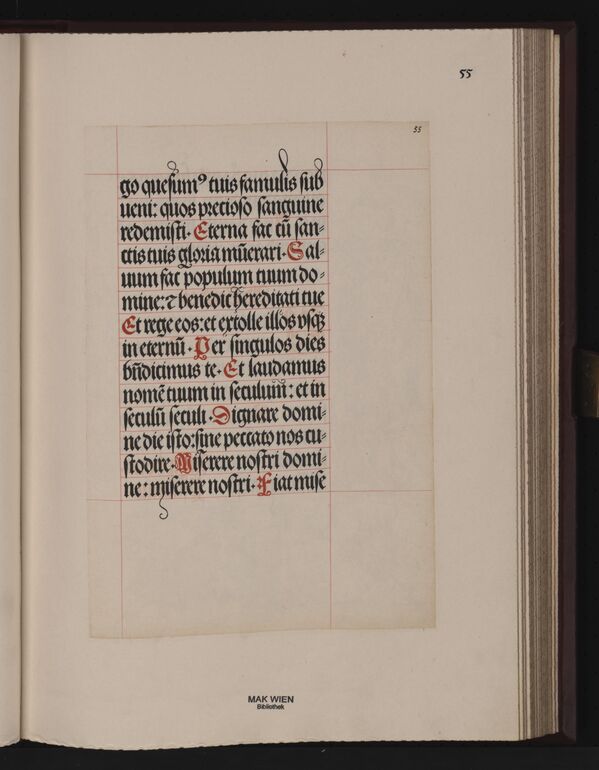 55
55
go quesumꝰ tuis famulis sub
ueni: quos precioso sanguine
redemisti. Eterna fac cū san-
ctis tuis gloria mūerari. Sal-
uum fac populum tuum do-
mine: ⁊ benedic hereditati tue
Et rege eos: et extolle illos vsqꝫ
in eternū. Per singulos dies
bn̄dicimus te. Et laudamus
nomē tuum in seculum: et in
seculū seculi. Dignare domi-
ne die isto: sine peccato nos cu-
stodire. Miserere nostri domi-
ne: miserere nostri. Fiat mise
MAK WIEN
Bibliothek